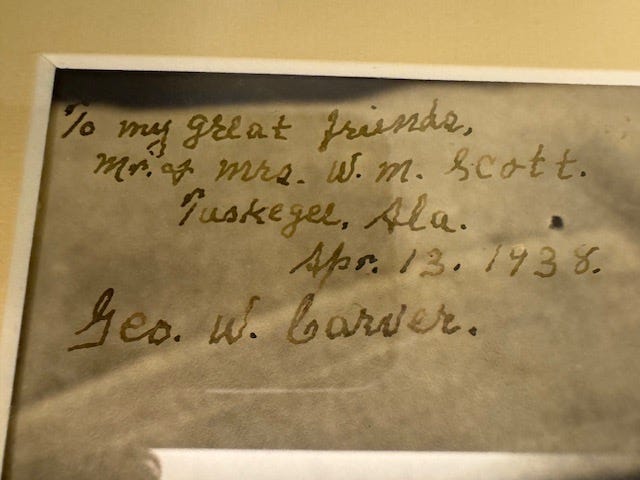 To my great friends,
Mr. & Mrs. W. M. Scott.
Tuskegee, Ala.
Apr. 13. 1938.
Geo. W. Carver.